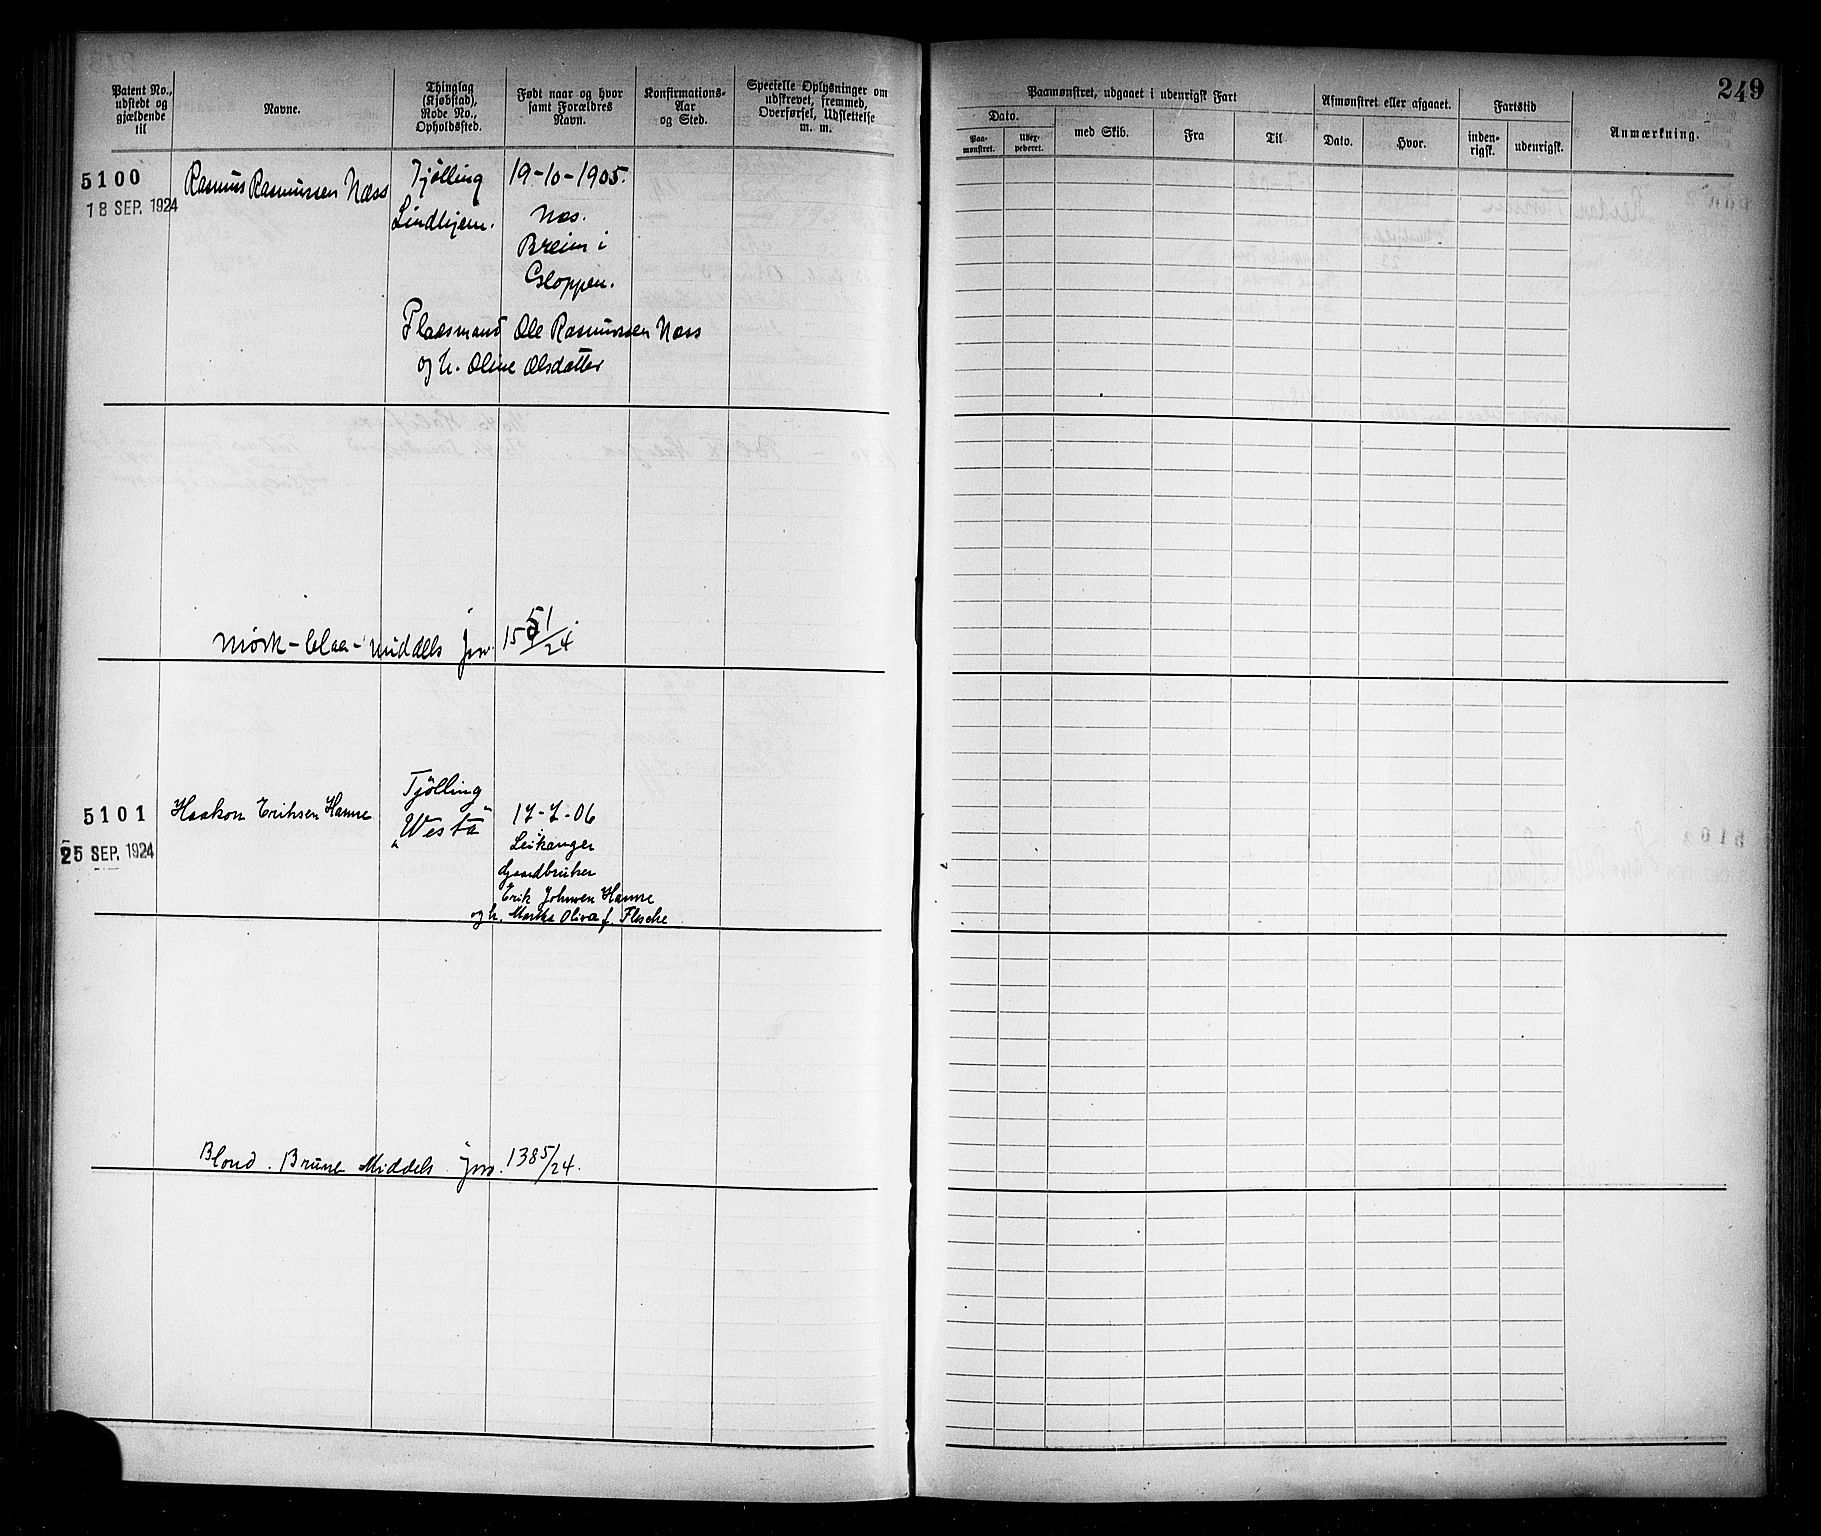 249
Patent No., udstedt og gjældende til
Navne.
Thinglag (Kjøbstad), Rode No., Opholdsfted.
Født naar og hvor samt Forældres Navn.
Konfirmations- Aar og Sted.
Specielle Oplysninger om udskrevet, fremmed, Overførsel, Udslettelse m. m.
Paamønstret, udgaaet i udenrigsk Fart
Afmønstret eller afgaaet.
Fartstid
Anmærkning.
Dato.
Paa- mønstret.
med Skib.
Fra
Til
Dato.
Hvor.
inden- rigsk.
udenrigsk.
5100
18 SEP. 1924
Rasmus Rasmussen Næss
Tjølling
Lindhjem.
19-10-1905.
Næs.
Breim i
Gloppen.
Pladsmand Ole Rasmussen Næss
og h. Oline Olsdatter
Mørk - blaa - middels
/24
5101
25 SEP. 1924
Haakon Eriksen Hamre
Tjølling
Westa
17-7-06
Leikanger
Gaardbruker
Erik Johnsen Hamre
og h. Marta Oliva f. Flesche
Blond. Brune Middels. 1385/24.